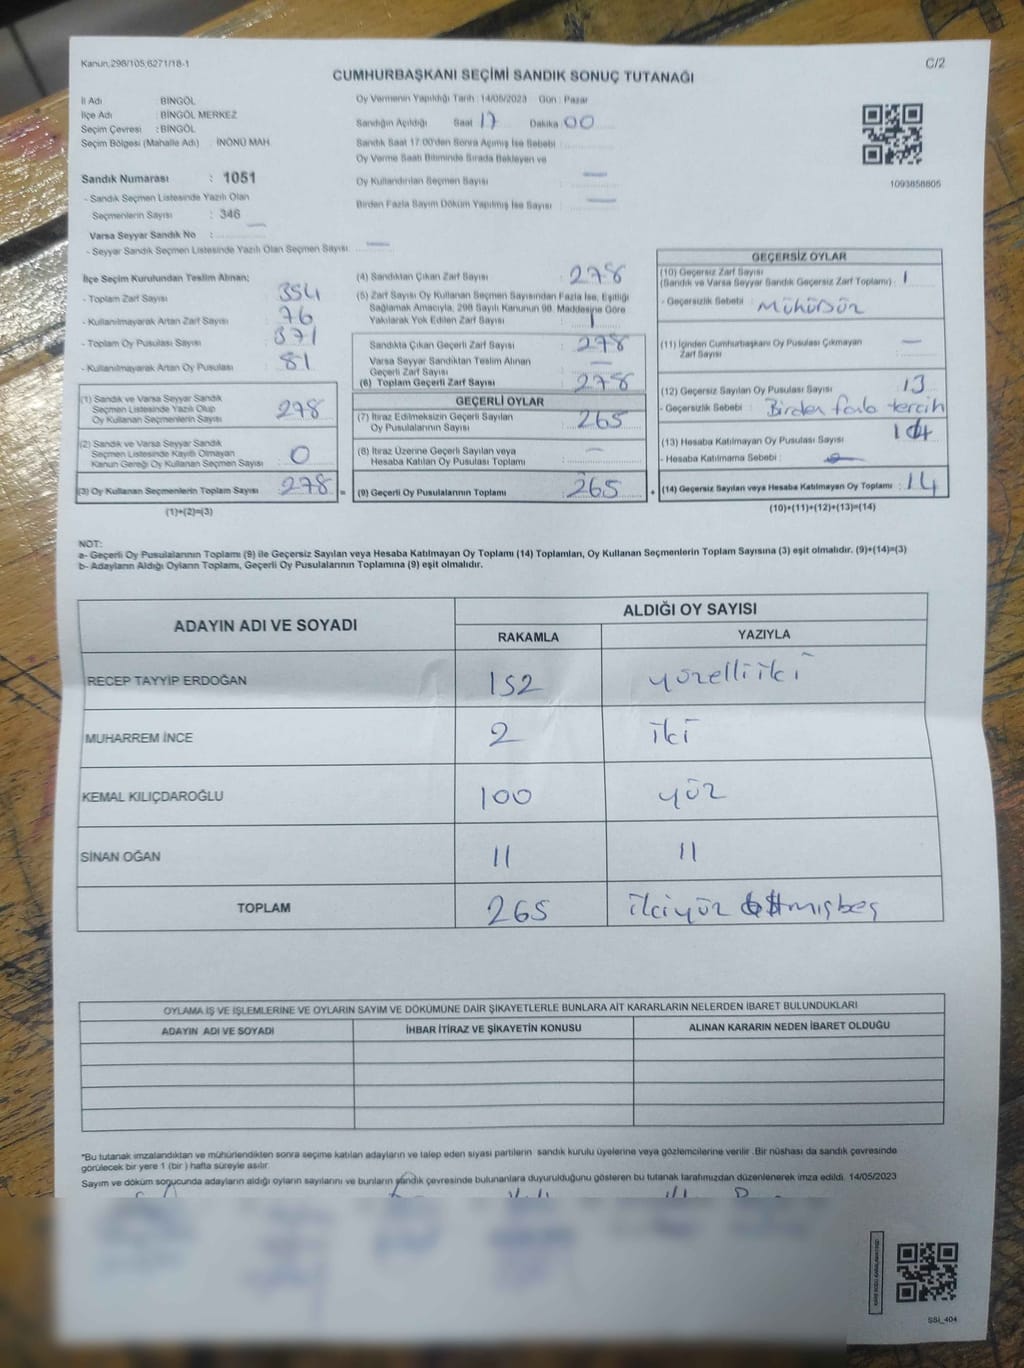 Kanun:298/105;6271/18-1
C/2
CUMHURBAŞKANI SEÇİMİ SANDIK SONUÇ TUTANAĞI
İl Adı : BİNGÖL
İlçe Adı : BİNGÖL MERKEZ
Seçim Çevresi : BİNGÖL
Seçim Bölgesi (Mahalle Adı) : İNÖNÜ MAH.
Sandık Numarası : 1051
- Sandık Seçmen Listesinde Yazılı Olan
Seçmenlerin Sayısı : 346
Varsa Seyyar Sandık No : —
- Seyyar Sandık Seçmen Listesinde Yazılı Olan Seçmen Sayısı: —
Oy Vermenin Yapıldığı Tarih : 14/05/2023 Gün : Pazar
Sandığın Açıldığı Saat 17 Dakika 00
Sandık Saat 17.00'den Sonra Açılmış İse Sebebi :
Oy Verme Saati Bitiminde Sırada Bekleyen ve
Oy Kullandırılan Seçmen Sayısı : —
Birden Fazla Sayım Döküm Yapılmış İse Sayısı : —
1093858805
İlçe Seçim Kurulundan Teslim Alınan;
- Toplam Zarf Sayısı : 354
- Kullanılmayarak Artan Zarf Sayısı : 76
- Toplam Oy Pusulası Sayısı : 371
- Kullanılmayarak Artan Oy Pusulası : 81
(1) Sandık ve Varsa Seyyar Sandık
Seçmen Listesinde Yazılı Olup
Oy Kullanan Seçmenlerin Sayısı : 278
(2) Sandık ve Varsa Seyyar Sandık
Seçmen Listesinde Kayıtlı Olmayan
Kanun Gereği Oy Kullanan Seçmen Sayısı : 0
(3) Oy Kullanan Seçmenlerin Toplam Sayısı : 278 =
(1)+(2)=(3)
(4) Sandıktan Çıkan Zarf Sayısı : 278
(5) Zarf Sayısı Oy Kullanan Seçmen Sayısından Fazla İse, Eşitliği
Sağlamak Amacıyla, 298 Sayılı Kanunun 98. Maddesine Göre
Yakılarak Yok Edilen Zarf Sayısı : 1
Sandıkta Çıkan Geçerli Zarf Sayısı : 278
Varsa Seyyar Sandıktan Teslim Alınan
Geçerli Zarf Sayısı : —
(6) Toplam Geçerli Zarf Sayısı : 278
GEÇERLİ OYLAR
(7) İtiraz Edilmeksizin Geçerli Sayılan
Oy Pusulalarının Sayısı : 265
(8) İtiraz Üzerine Geçerli Sayılan veya
Hesaba Katılan Oy Pusulası Toplamı : —
(9) Geçerli Oy Pusulalarının Toplamı : 265 +
GEÇERSİZ OYLAR
(10) Geçersiz Zarf Sayısı
(Sandık ve Varsa Seyyar Sandık Geçersiz Zarf Toplamı) : 1
- Geçersizlik Sebebi : Mühürsüz
(11) İçinden Cumhurbaşkanı Oy Pusulası Çıkmayan
Zarf Sayısı : —
(12) Geçersiz Sayılan Oy Pusulası Sayısı : 13
- Geçersizlik Sebebi : Birden fazla tercih
(13) Hesaba Katılmayan Oy Pusulası Sayısı :
- Hesaba Katılmama Sebebi :
(14) Geçersiz Sayılan veya Hesaba Katılmayan Oy Toplamı : 14
(10)+(11)+(12)+(13)=(14)
NOT:
a- Geçerli Oy Pusulalarının Toplamı (9) ile Geçersiz Sayılan veya Hesaba Katılmayan Oy Toplamı (14) Toplamları, Oy Kullanan Seçmenlerin Toplam Sayısına (3) eşit olmalıdır. (9)+(14)=(3)
b- Adayların Aldığı Oyların Toplamı, Geçerli Oy Pusulalarının Toplamına (9) eşit olmalıdır.
ADAYIN ADI VE SOYADI
ALDIĞI OY SAYISI
RAKAMLA YAZIYLA
RECEP TAYYİP ERDOĞAN 152 yüzelliiki
MUHARREM İNCE 2 iki
KEMAL KILIÇDAROĞLU 100 yüz
SİNAN OĞAN 11 11
TOPLAM 265 ikiyüz altmışbeş
OYLAMA İŞ VE İŞLEMLERİNE VE OYLARIN SAYIM VE DÖKÜMÜNE DAİR ŞİKAYETLERLE BUNLARA AİT KARARLARIN NELERDEN İBARET BULUNDUKLARI
ADAYIN ADI VE SOYADI İHBAR İTİRAZ VE ŞİKAYETİN KONUSU ALINAN KARARIN NEDEN İBARET OLDUĞU
*Bu tutanak imzalandıktan ve mühürlendikten sonra seçime katılan adayların ve talep eden siyasi partilerin sandık kurulu üyelerine veya gözlemcilerine verilir. Bir nüshası da sandık çevresinde
görülecek bir yere 1 (bir) hafta süreyle asılır.
Sayım ve döküm sonucunda adayların aldığı oyların sayılarını ve bunların sandık çevresinde bulunanlara duyurulduğunu gösteren bu tutanak tarafımızdan düzenlenerek imza edildi. 14/05/2023
SSİ_404